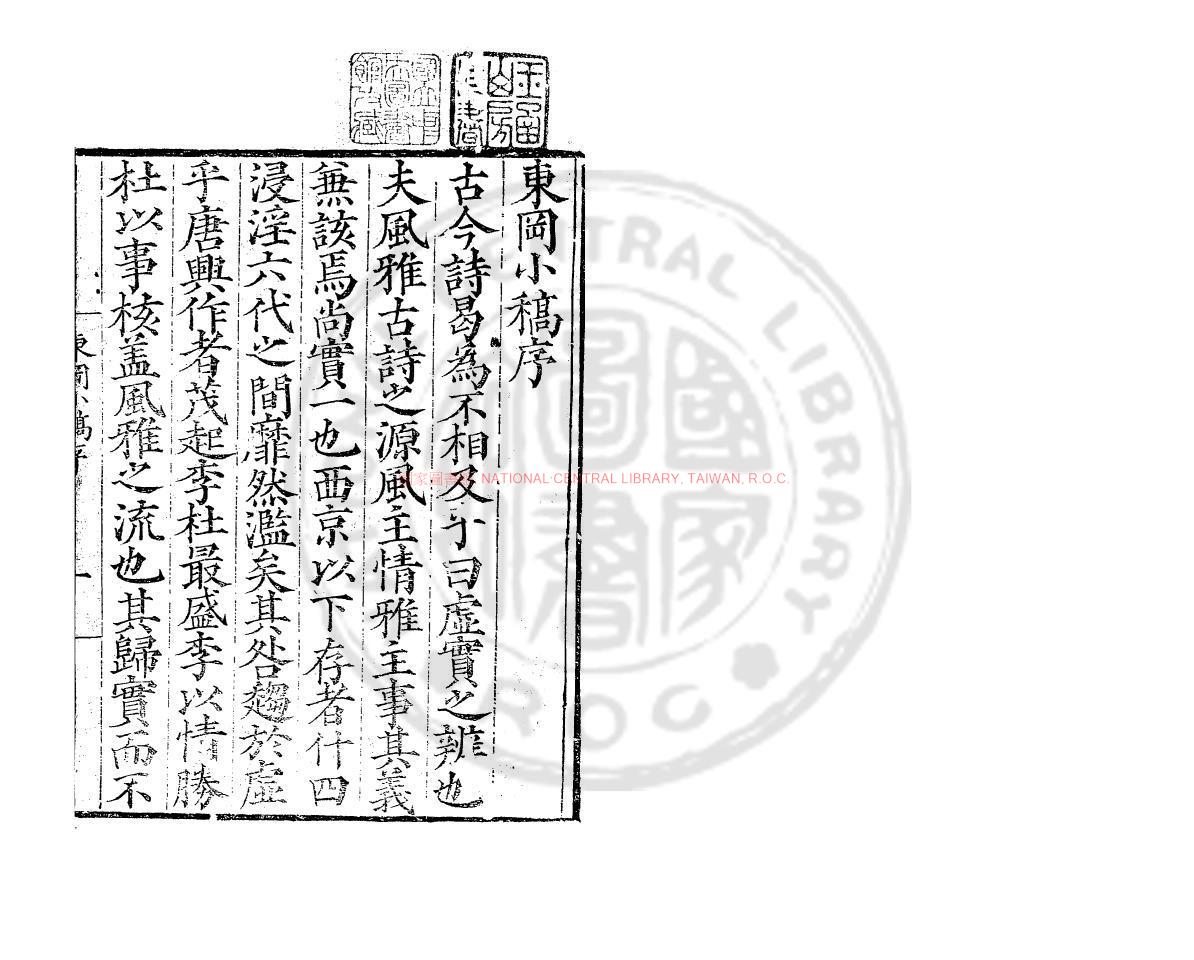 東岡小稿序
古今詩曷為不相及乎曰虛實之辨也
夫風雅古詩之源風主情雅主事其義
兼該焉尚實一也西京以下存者什四
浸淫六代之間靡然濫矣其咎趨於虛
乎唐興作者茂起李杜最盛李以情勝
杜以事核盖風雅之流也其歸實而不
東岡小稿序
一
國家圖書館 NATIONAL CENTRAL LIBRARY, TAIWAN, R.O.C.
CENTRAL LIBRARY
ROC
國家圖書